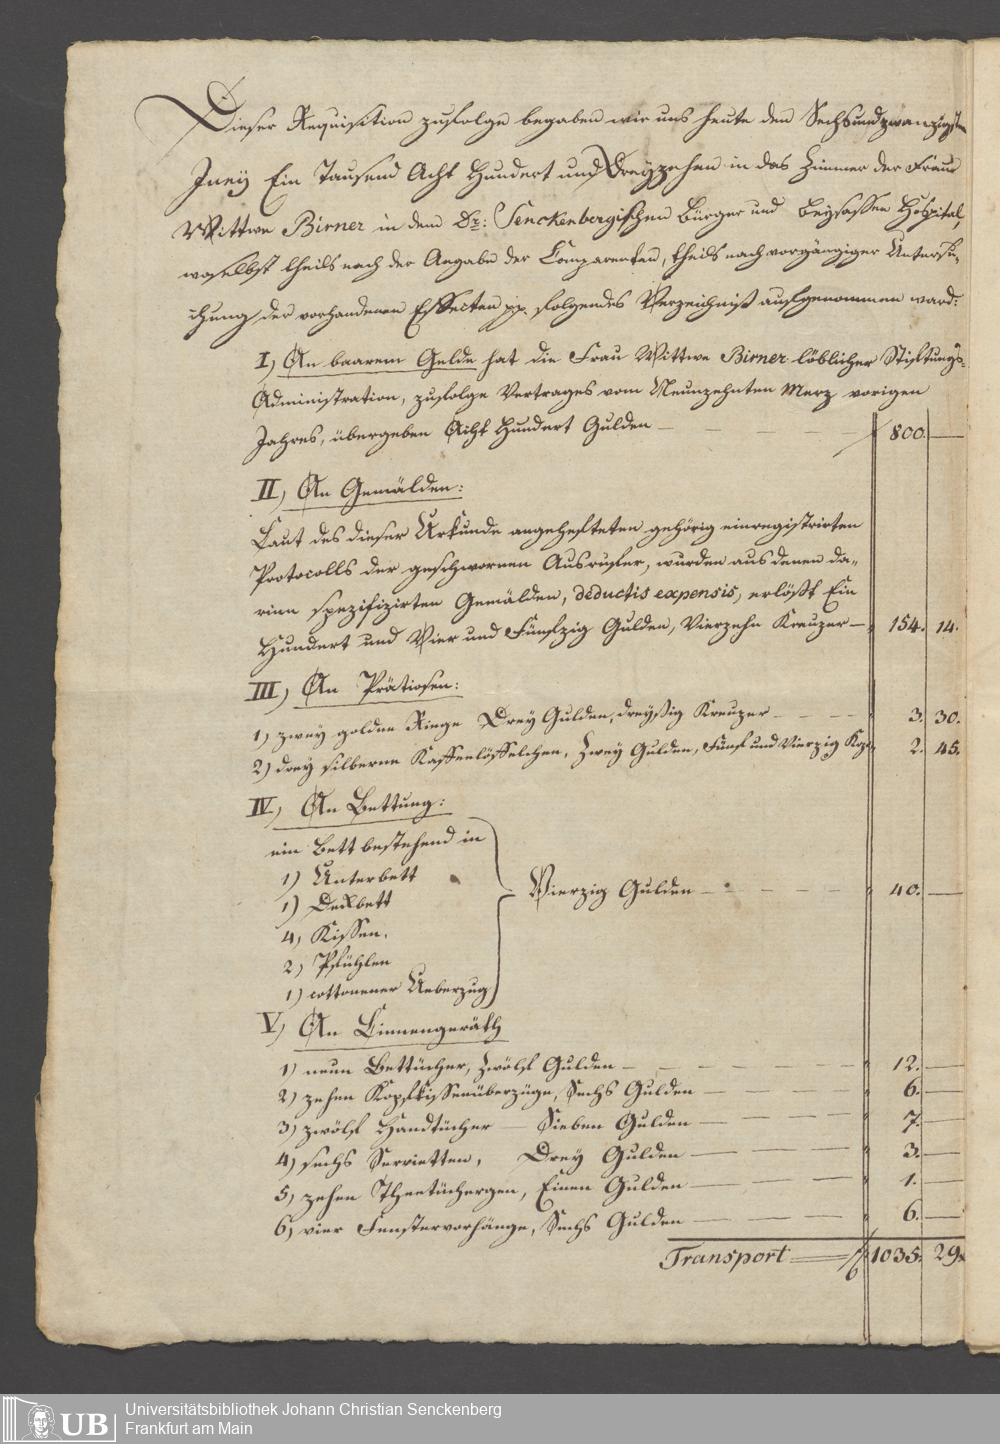 Dieser Requisition zufolge begaben wir uns heute den Sechsundzwanzigsten
Juny Ein Tausend Acht Hundert und Dreyzehen in das Zimmer der Frau
Wittwe Birner in dem Dr: Senckenbergischen Bürger und Beysassen Hospital,
woselbst theils nach der Angabe der Comparenten, theils nach vorgängiger Untersu-
chung der vorhandenen Effecten pp. folgendes Verzeichniß aufgenommen ward:
I, An baarem Gelde hat die Frau Wittwe Birner löblicher Stiftungs-
Administration, zufolge Vertrages vom Neunzehnten Merz vorigen
Jahres, übergeben Acht Hundert Gulden — f 800. —
II, An Gemälden:
Laut des dieser Urkunde angehefteten gehörig einregistrirten
Protocolls der geschwornen Ausrufer, wurden aus denen da-
rinn spezifizirten Gemälden, deductis expensis, erlößt Ein
Hundert und Vier und Fünfzig Gulden, Vierzehn Kreuzer — " 154. 14.
III, An Prätiosen:
1) zwey goldne Ringe Drey Gulden, dreyßig Kreuzer — " 3. 30.
2) drey silberne Kaffeelöffelchen, Zwey Gulden, Fünf und Vierzig Kzr " 2. 45.
IV, An Bettung:
ein Bett bestehend in
1) Unterbett
1) Deckbett
4, Kissen.
2) Pfühlen
1) cottonener Ueberzug
Vierzig Gulden — " 40. —
V, An Linnengeräth
1) neun Bettücher, Zwölf Gulden — " 12. —
2) zehen Kopfkissenüberzüge, Sechs Gulden — " 6. —
3) zwölf Handtücher — Sieben Gulden — " 7. —
4) sechs Servietten, Drey Gulden — " 3. —
5) zehen Theetüchergen, Einen Gulden — " 1. —
6) vier Fenstervorhänge, Sechs Gulden — " 6. —
Transport = f 1035. 29.
UB
Universitätsbibliothek Johann Christian Senckenberg
Frankfurt am Main